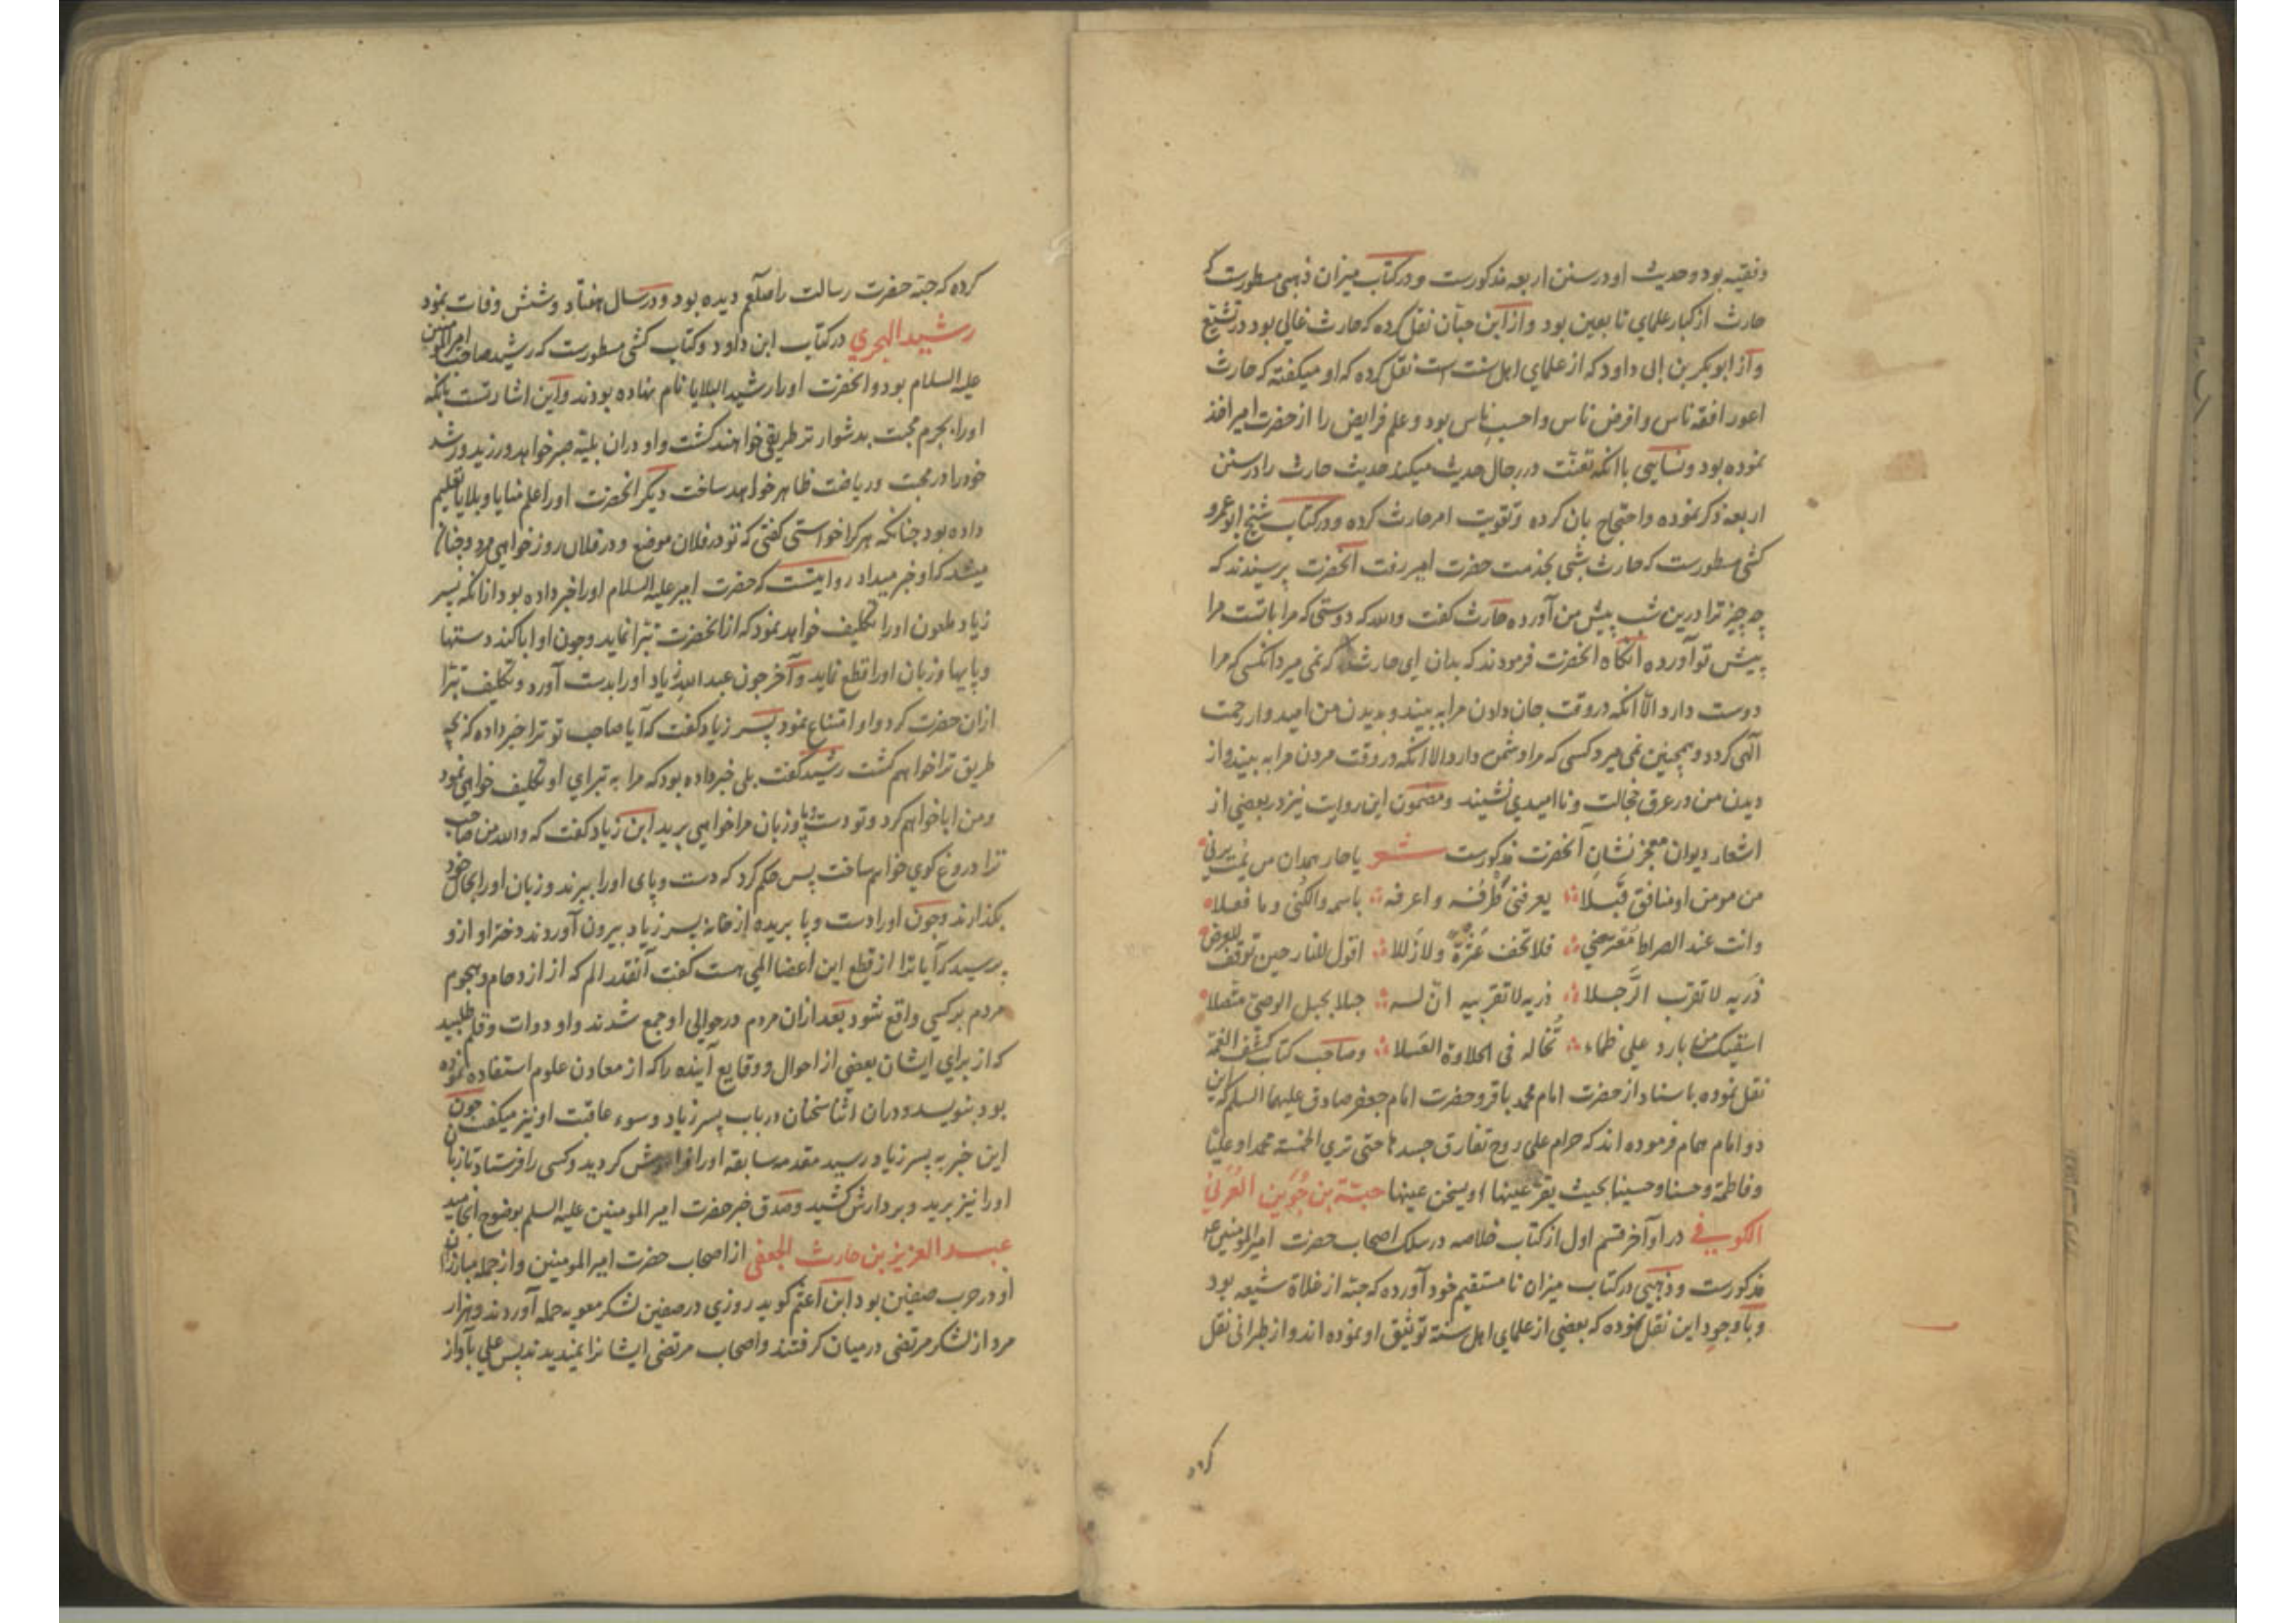 و فقیه بود و حدیث او در سنن اربعه مذکورست و در کتاب میزان ذهبی مسطورست که
حارث از کبار علمای تابعین بود و از ابن حبان نقل کرده که حارث غالی بود در تشیع
و از ابوبکر بن ابی داود که از علمای اهل سنت است نقل کرده که او میکفته که حارث
اعور افقه ناس و افرض ناس و احسب ناس بود و علم فرایض را از حضرت امیر اخذ
نموده بود و نسایی با انکه تعنت در رجال حدیث میکند حدیث حارث را در سنن
اربعه ذکر نموده و احتجاج بان کرده و تقویت امر حارث کرده و در کتاب شیخ ابو عمرو
کشی مسطورست که حارث شبی بخدمت حضرت امیر رفت آنحضرت پرسیدند که
چه چیز ترا درین شب پیش من آورده حارث کفت والله که دوستی که مرا با تست مرا
پیش تو آورده انکاه انحضرت فرمودند که بدان ای حارث که نمی میرد انکس که مرا
دوست دارد الا انکه در وقت جان دادن مرا به بیند و بدیدن من امیدوار رحمت
آلهی کردد و همچنین نمی میرد کسی که مرا دشمن دارد الا انکه در وقت مردن مرا به بیند و از
دیدن من در عرق خجالت و ناامیدی نشیند و مضمون این روایت نیز در بعضی از
اشعار دیوان معجز نشان آنحضرت مذکورست شعر یا حار همدان من یمت یرنی
من مومن او منافق قبلا یعرفنی طرفه و اعرفه باسمه والکنی و ما فعلا
وانت عند الصراط معترضی فلا تخف عثرة ولا زللا اقول للنار حین توقف للعرض
ذریه لا تقرب الرجلا ذریه لا تقربیه ان له حبلا بحبل الوصی متصلا
اسقیک من بارد علی ظماء تخاله فی الحلاوة العسلا و صاحب کتاب کشف الغمة
نقل نموده باسناد از حضرت امام محمد باقر و حضرت امام جعفر صادق علیهما السلم که این
دو امام همام فرموده اند که حرام علی روح تفارق جسدها حتی تری الخمسة محمدا و علیا
و فاطمة و حسنا و حسینا بحیث یقر عینها او یسخن عینها حبة بن جوین العرنی
الکوفی در اواخر قسم اول از کتاب خلاصه در سلک اصحاب حضرت امیرالمومنین ع
مذکورست و ذهبی در کتاب میزان نا مستقیم خود آورده که حبه از غلاة شیعه بود
و با وجود این نقل نموده که بعضی از علمای اهل سنة توثیق او نموده اند و از طبرانی نقل
کرده
کرده که حبة حضرت رسالت را صلعم دیده بود و در سال هفتاد و شش وفات نمود
رشید الهجری در کتاب ابن داود و کتاب کشی مسطورست که رشید صاحب امیرالمومنین
علیه السلام بود و انحضرت او را رشید البلایا نام نهاده بودند و این اشارتست بانکه
او را بجرم محبت بدشوار تر طریقی خواهند کشت و او دران بلیه صبر خواهد ورزید و رشد
خود را در محبت و ریاضت ظاهر خواهد ساخت دیکر انحضرت او را علم منایا و بلایا تعلیم
داده بود چنانکه هر کرا خواستی کفتی که تو در فلان موضع و در فلان روز خواهی مرد و چنان
میشد که او خبر میداد روایتست که حضرت امیر علیه السلام او را خبر داده بود از انکه پسر
زیاد ملعون او را تکلیف خواهد نمود که از انحضرت تبرا نماید و چون او ابا کند دستها
و پایها و زبان او را قطع نماید و آخر چون عبد الله زیاد او را بدست آورد و تکلیف تبرا
ازان حضرت کرد و او امتناع نمود پسر زیاد کفت که آیا صاحب تو ترا خبر داده که بچه
طریق ترا خواهم کشت رشید کفت بلی خبر داده بود که مرا به تبرای او تکلیف خواهی نمود
و من ابا خواهم کرد و تو دست و پا و زبان مرا خواهی برید ابن زیاد کفت که والله من صاحب
ترا دروغ کوی خواهم ساخت پس حکم کرد که دست و پای او را ببرند و زبان او را بحال خود
بکذارند و چون او را دست و پا بریده از خانه پسر زیاد بیرون آوردند دختر او ازو
پرسید که آیا ترا از قطع این اعضا المی هست کفت آنقدر الم که از ازدحام و هجوم
مردم بر کسی واقع شود بعد ازان مردم در حوالی او جمع شدند و او دوات و قلم طلبید
که از برای ایشان بعضی از احوال و وقایع آینده را که از معادن علوم استفاده نموده
بود بنویسد و دران اثنا سخنان در باب پسر زیاد و سوء عاقبت او نیز میکفت چون
این خبر به پسر زیاد رسید مقدمه سابقه او را فراموش کردید و کسی را فرستاد تا زبان
او را نیز برید و بر دارش کشید و صدق خبر حضرت امیر المومنین علیه السلم بوضوح انجامید
عبد العزیز بن حارث الجعفی از اصحاب حضرت امیر المومنین و از جمله مبارزان
او در حرب صفین بود ابن اعثم کوید روزی در صفین لشکر معویه حمله آوردند و هزار
مرد از لشکر مرتضی در میان کرفتند و اصحاب مرتضی ایشانرا نمیدیدند پس علی بآواز